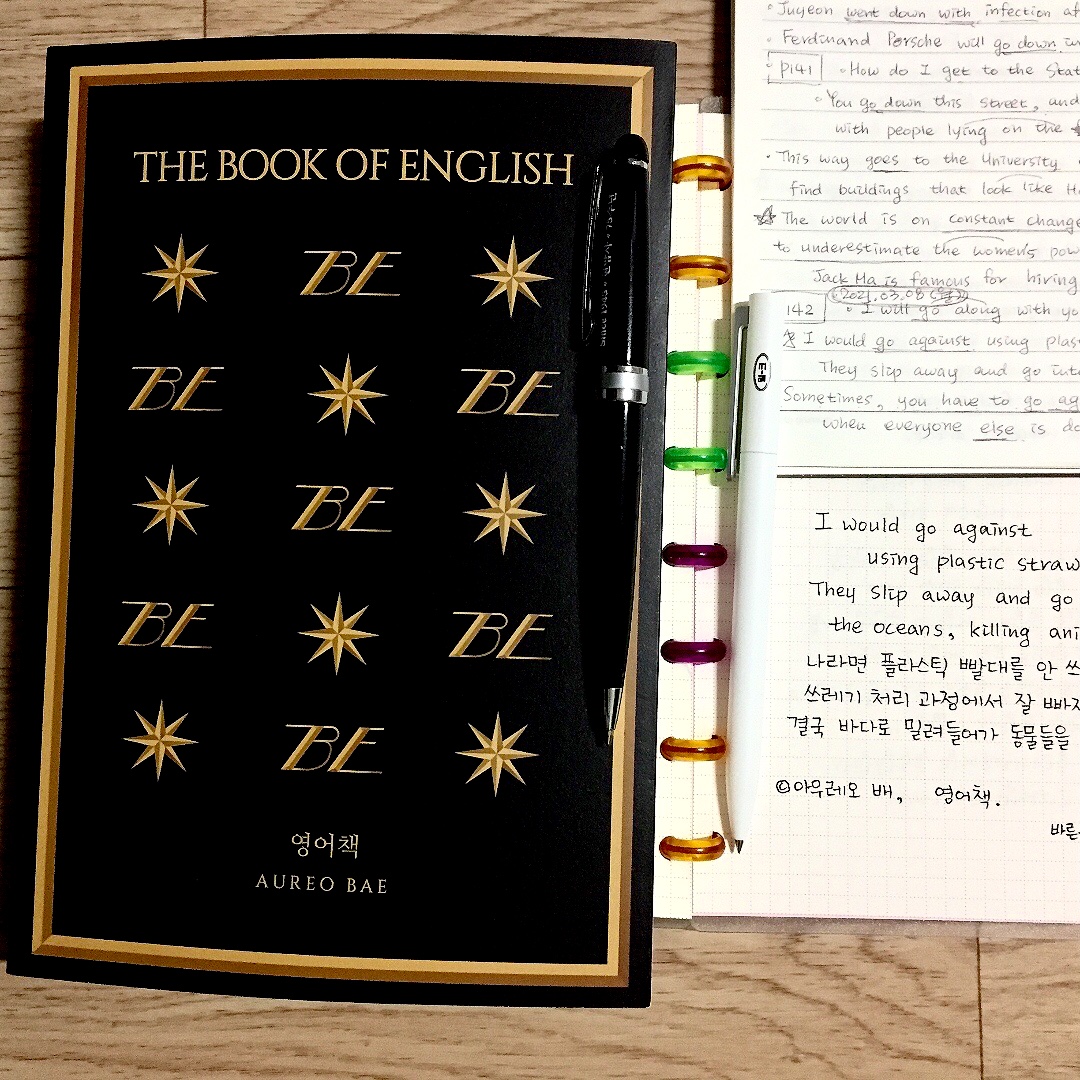 THE BOOK OF ENGLISH
BE
BE BE
BE
BE BE
BE
영어책
AUREO BAE
Juyeon went down with infection af
Ferdinand Porsche will go down in
P141 How do I get to the Stat
You go down this street, and
with people lying on the
This way goes to the University
find buildings that look like Ha
The world is on constant change
to underestimate the women's pow
Jack Ma is famous for hiring
2021.03.08 (월)
142 I will go along with yo
I would go against using plast
They slip away and go into
Sometimes, you have to go aga
when everyone else is do
I would go against
using plastic straw
They slip away and go
the oceans, killing ani
나라면 플라스틱 빨대를 안 쓰
쓰레기 처리 과정에서 잘 빠져
결국 바다로 밀려들어가 동물들을
©아우레오 배, 영어책.
바른